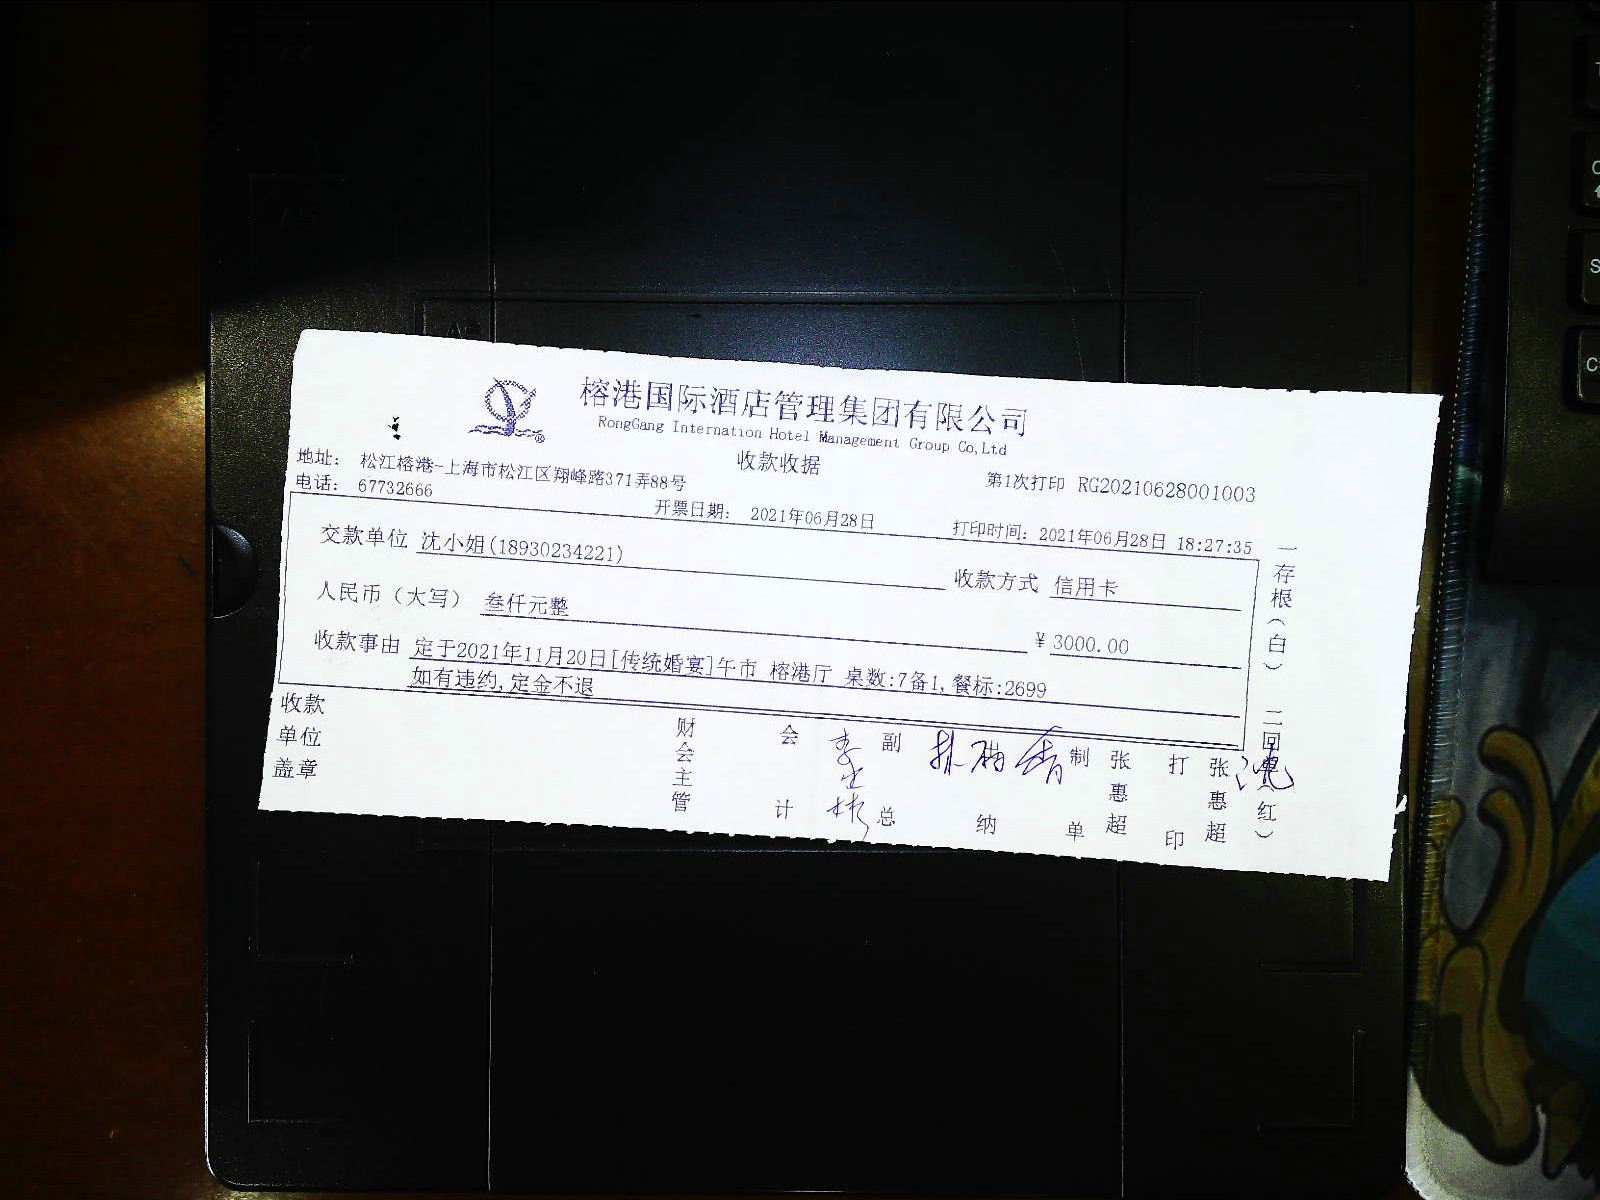 榕港国际酒店管理集团有限公司
RongGang Internation Hotel Management Group Co,Ltd
收款收据
地址： 松江榕港-上海市松江区翔峰路371弄88号
第1次打印 RG20210628001003
电话： 67732666
开票日期： 2021年06月28日
打印时间: 2021年06月28日 18:27:35
交款单位 沈小姐(18930234221)
收款方式 信用卡
人民币（大写） 叁仟元整
¥ 3000.00
收款事由 定于2021年11月20日[传统婚宴]午市 榕港厅 桌数:7备1,餐标:2699
如有违约,定金不退
收款单位盖章
财会主管
会计
副总
纳
制单 张惠超
打印 张惠超
一存根（白）
二回（红）